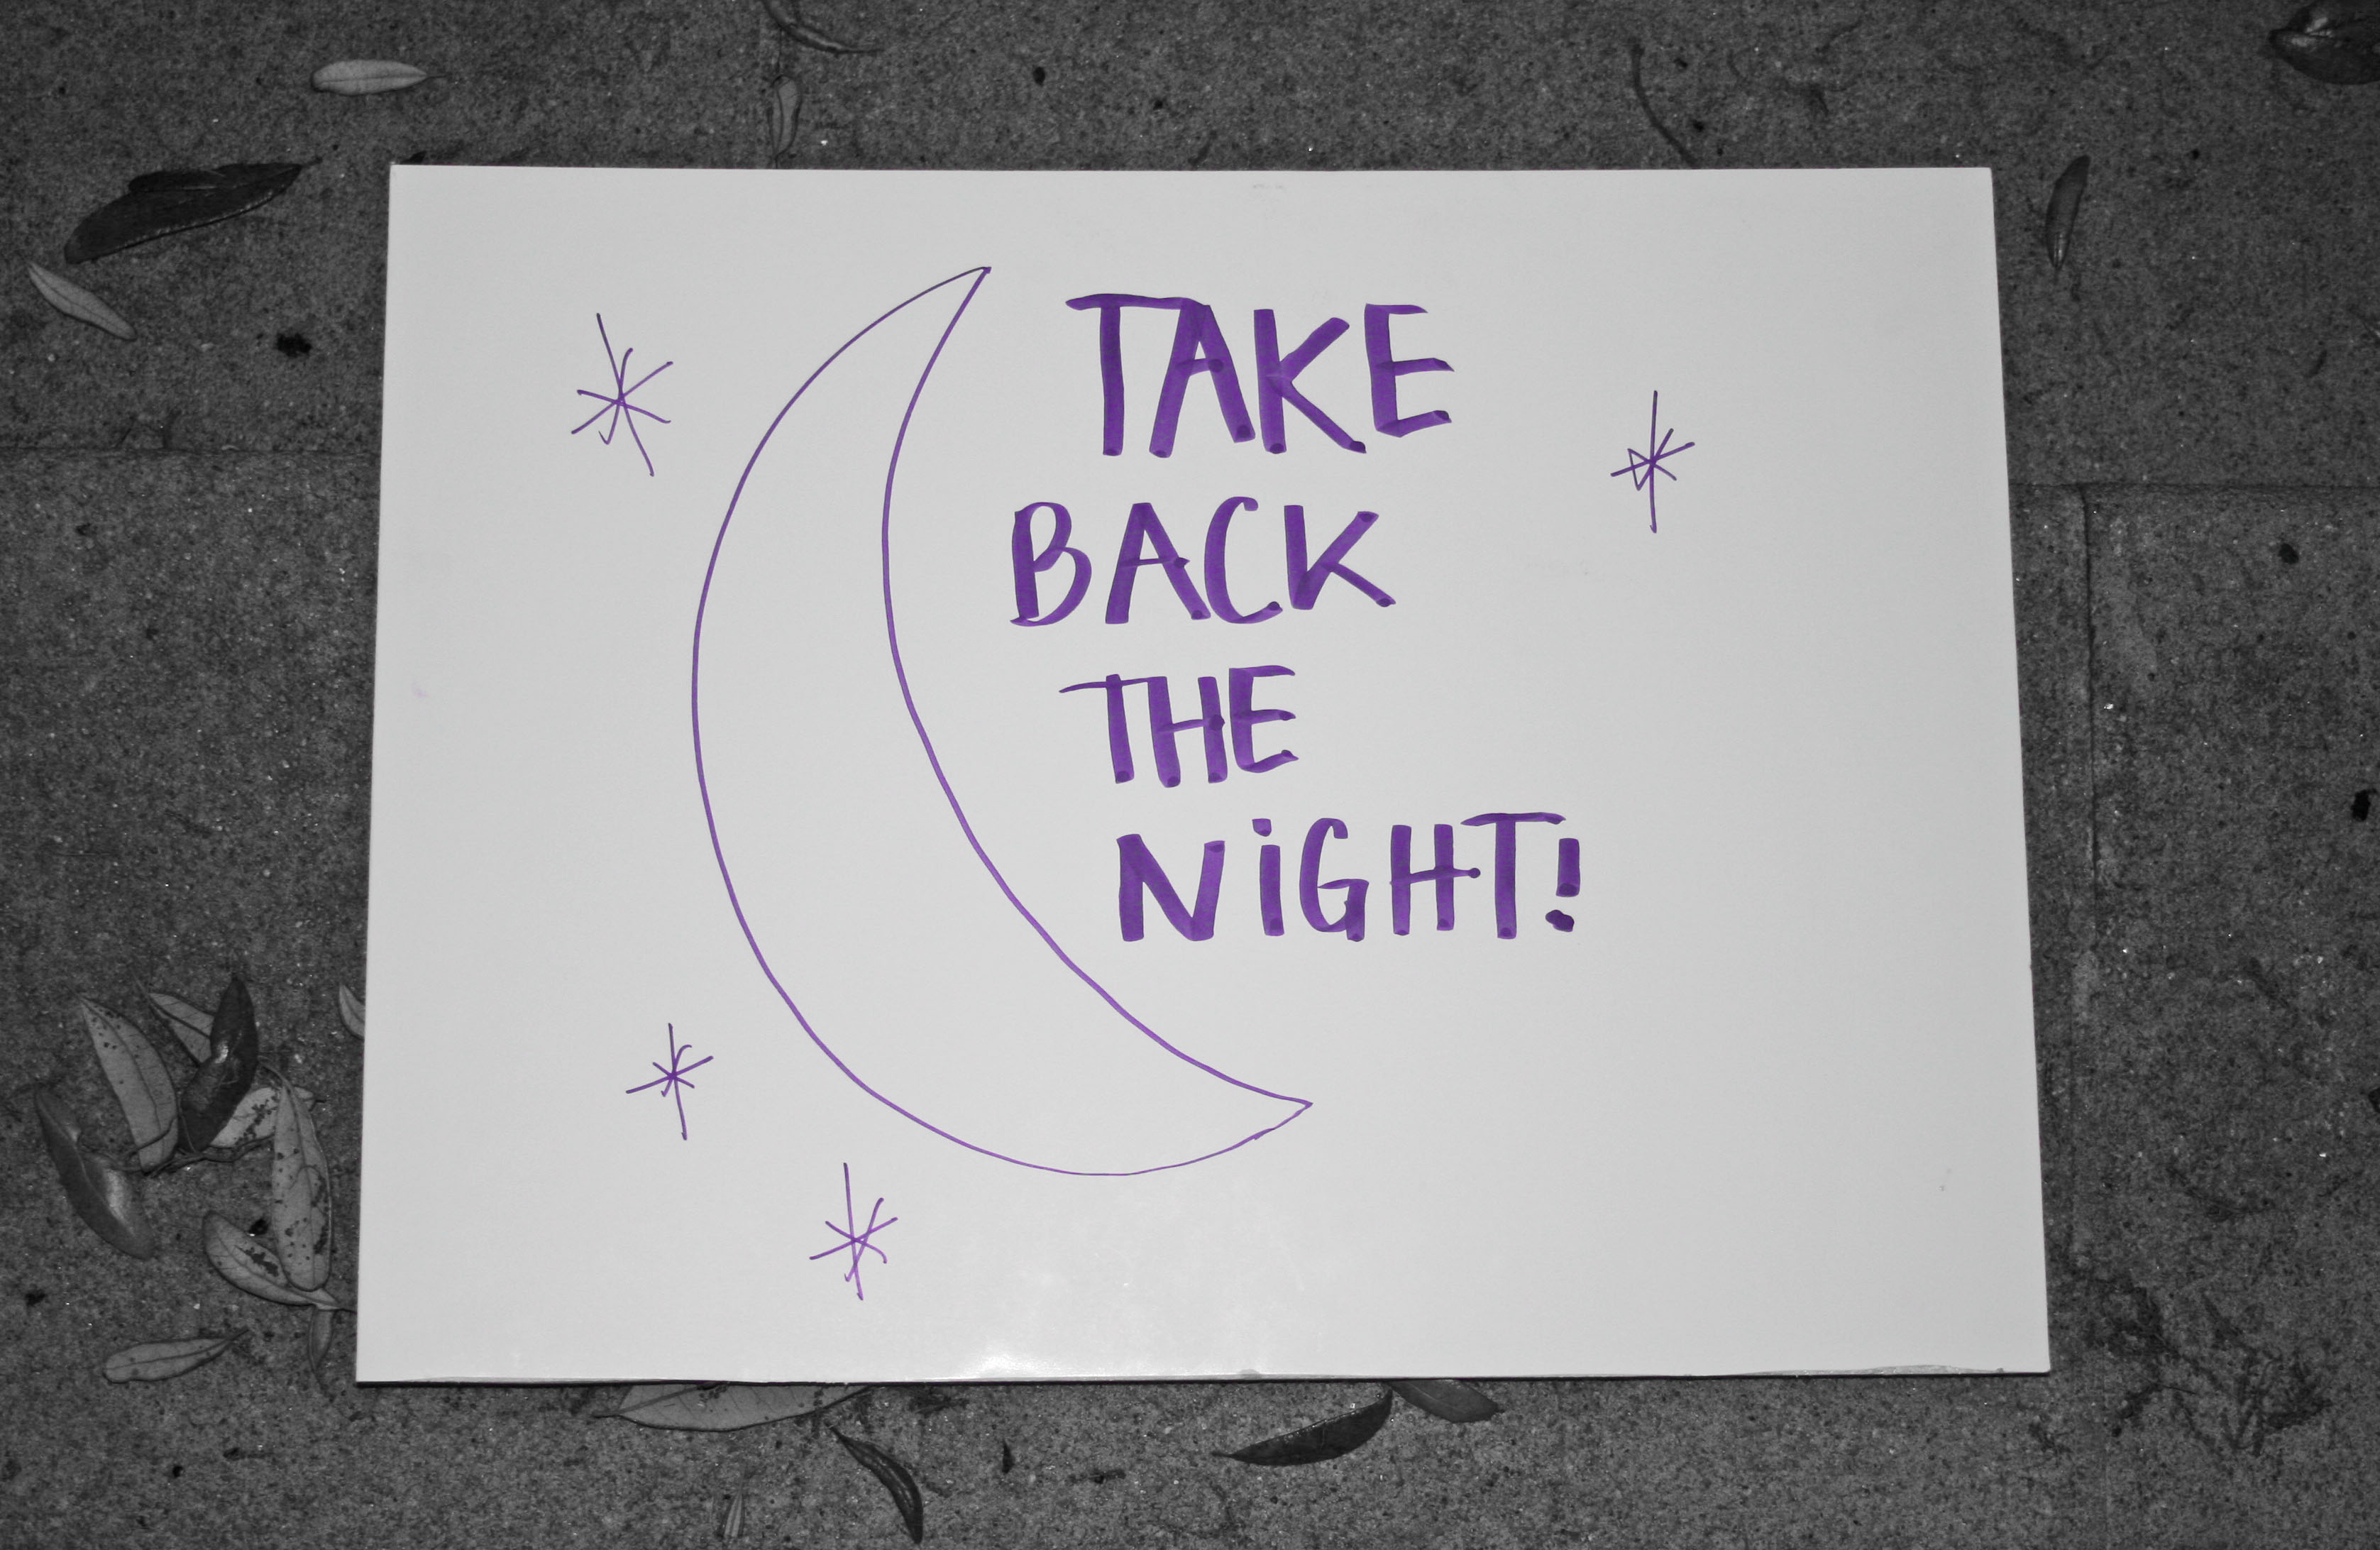 TAKE
BACK
THE
NiGHT!